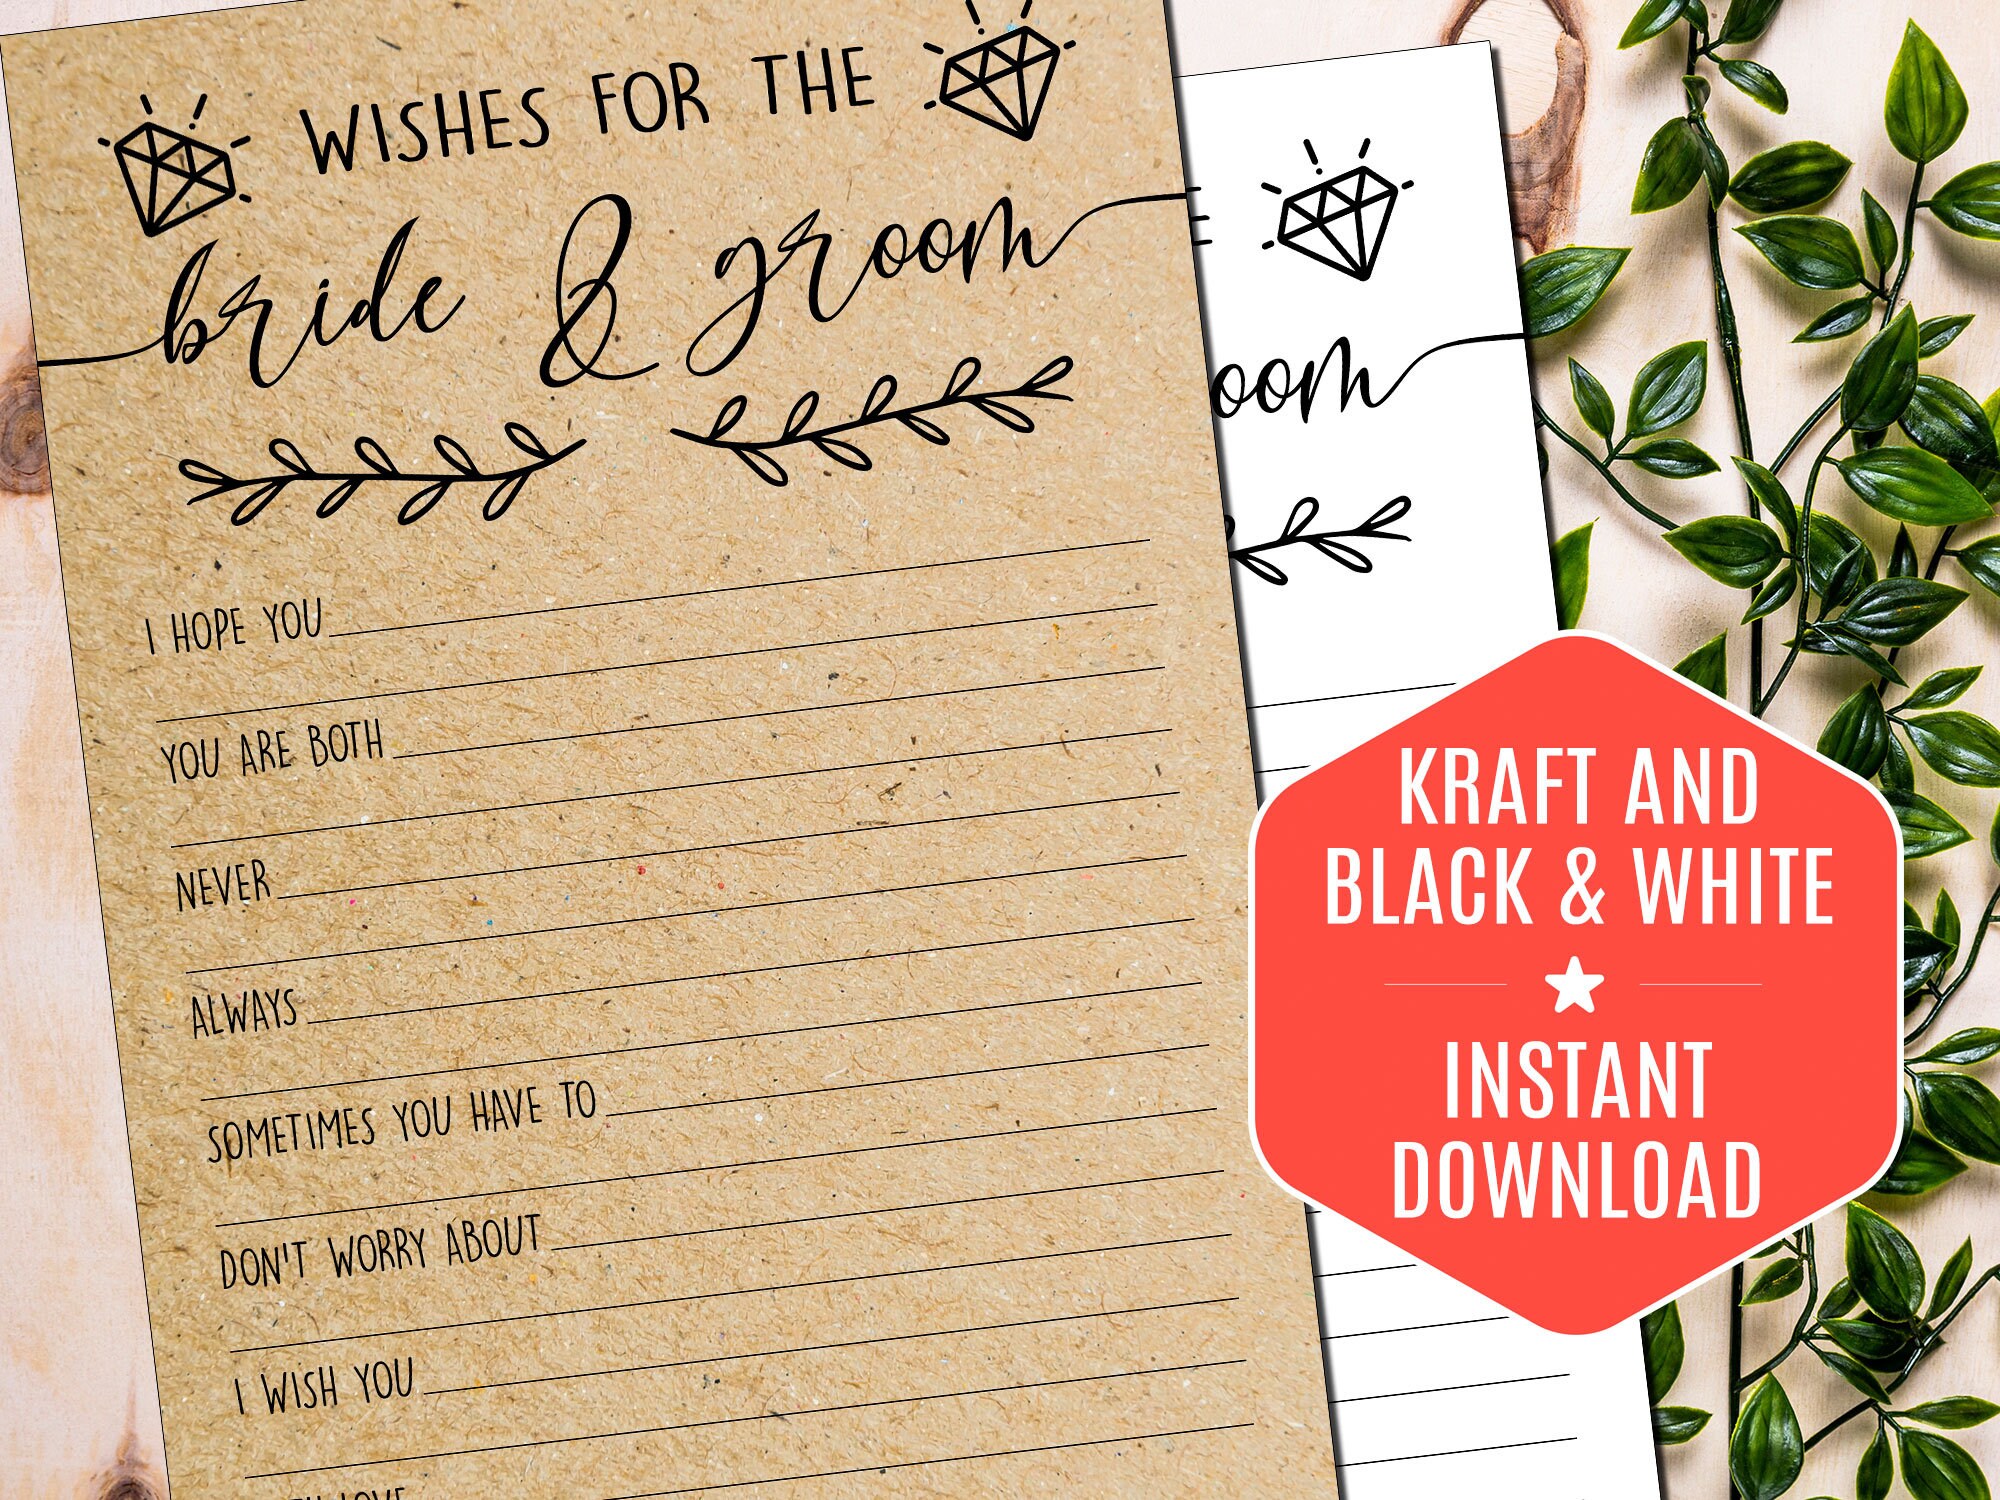 WISHES FOR THE
bride & groom
I HOPE YOU
YOU ARE BOTH
NEVER
ALWAYS
SOMETIMES YOU HAVE TO
DON'T WORRY ABOUT
I WISH YOU
LOVE
oom
KRAFT AND
BLACK & WHITE
INSTANT
DOWNLOAD